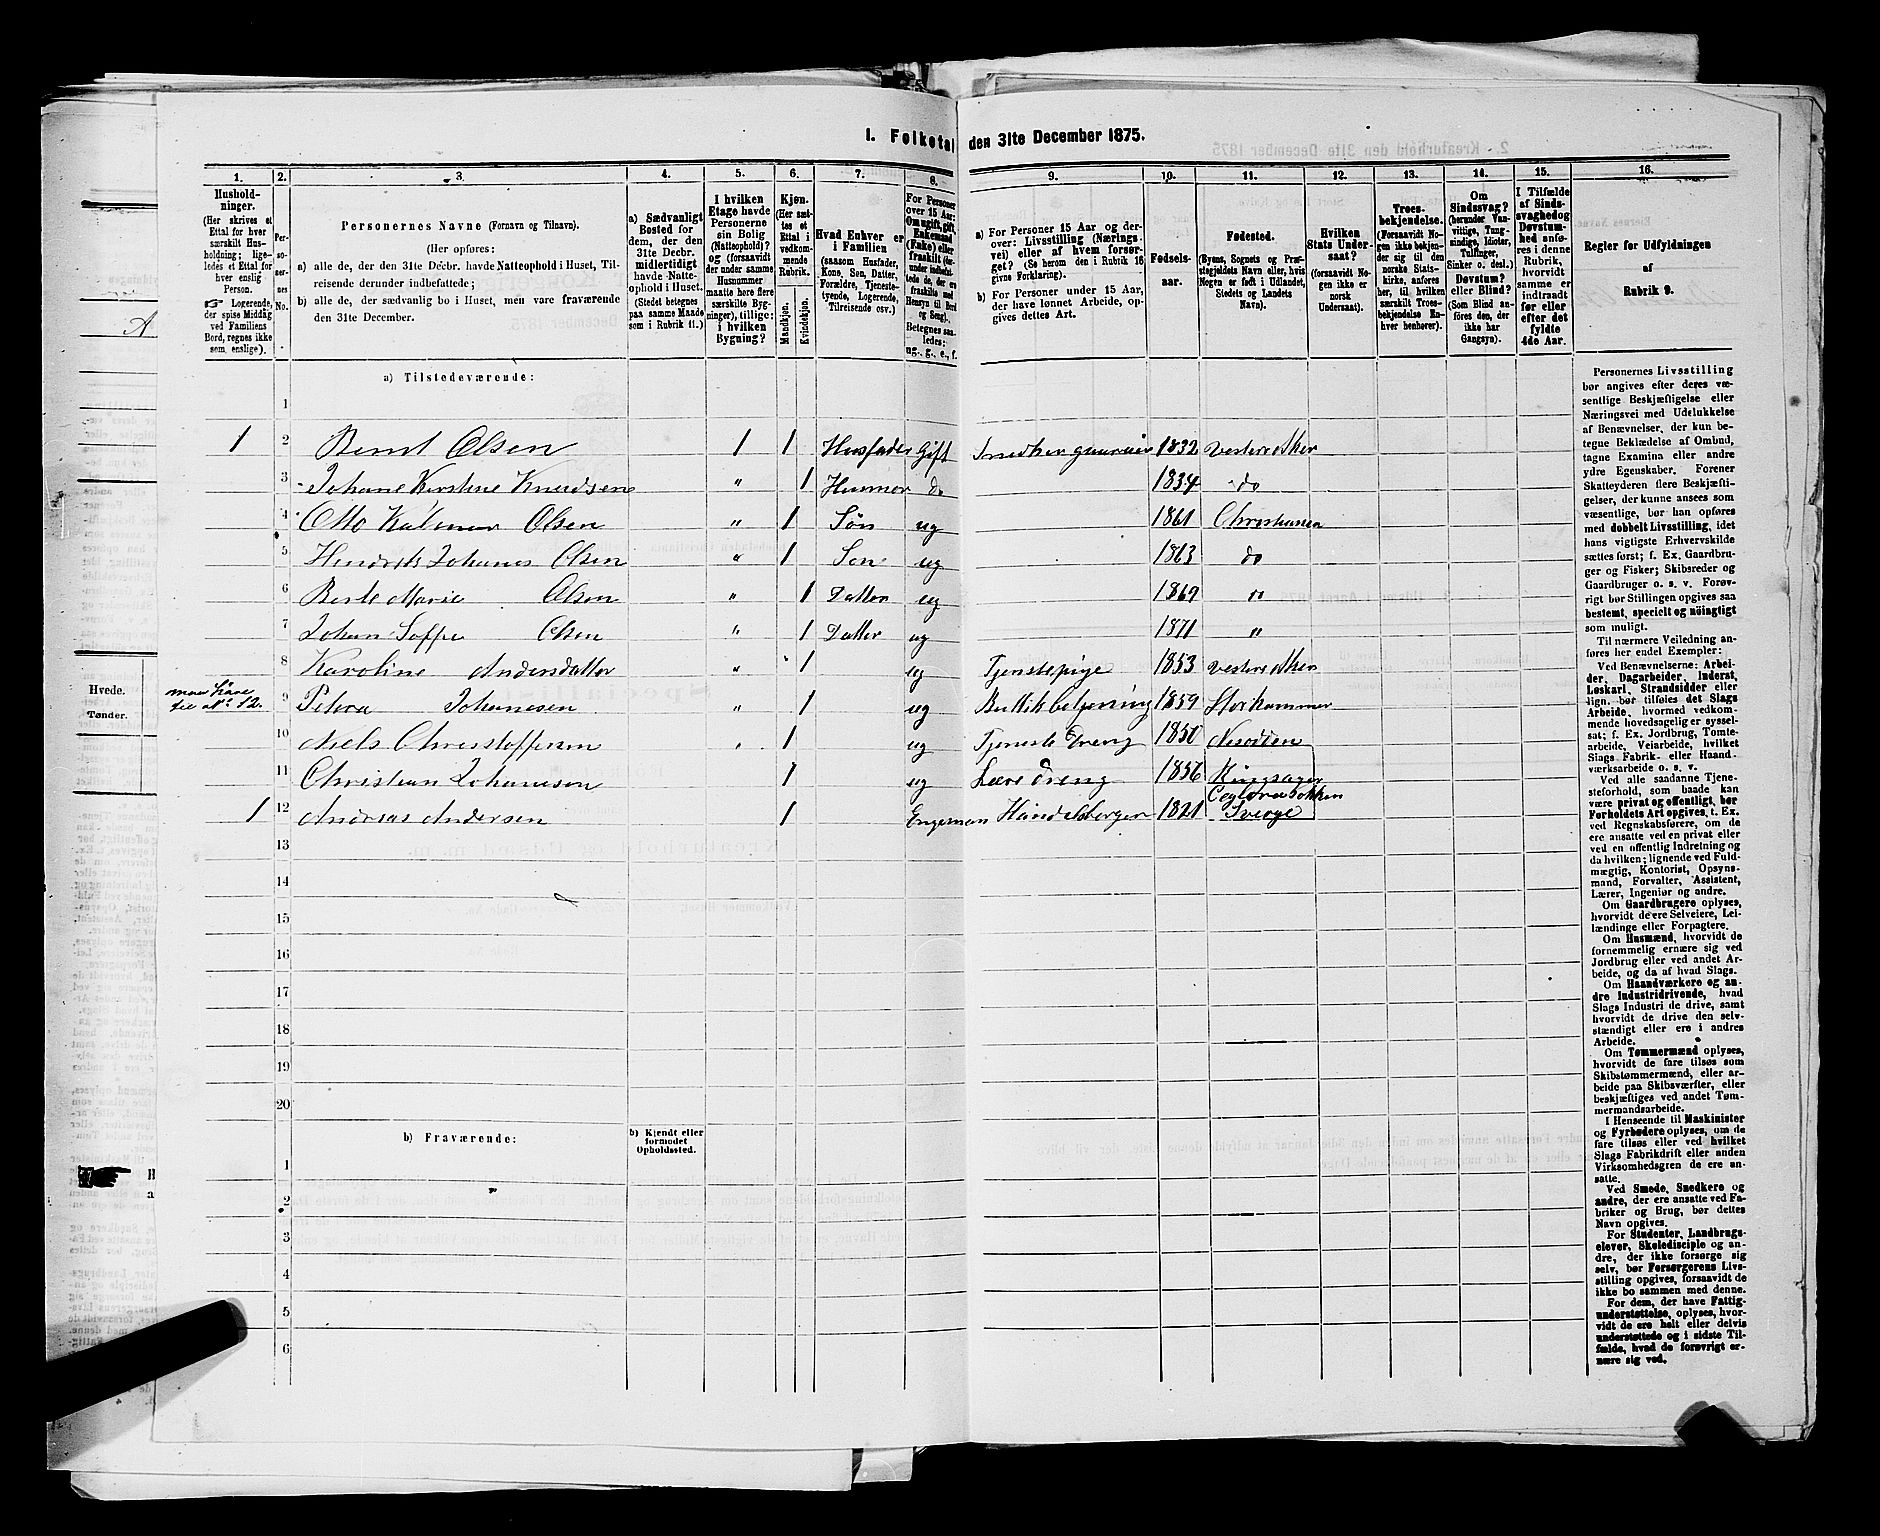 I. Folketal den 31te December 1875.
1. 2. 3. 4. 5. 6. 7. 8. 9. 10. 11. 12. 13. 14. 15. 16.
Hushold-
ninger.
(Her skrives et
Ettal for hver
særskilt Hus-
holdning; lige-
ledes et Ettal for
hver enslig
Person.
☞ Logerende,
der spise Middag
ved Familiens
Bord, regnes ikke
som enslige).
Per-
soner-
nes
No.
Personernes Navne (Fornavn og Tilnavn).
(Her opføres:
a) alle de, der den 31te Decbr. havde Natteophold i Huset, Til-
reisende derunder indbefattede;
b) alle de, der sædvanlig bo i Huset, men vare fraværende
den 31te December.
a) Sædvanligt
Bosted for
dem, der den
31te Decbr.
midlertidigt
havde Natte-
ophold i Huset.
(Stedet betegnes
paa samme Maade
som i Rubrik 11.)
I hvilken
Etage havde
Personerne
sin Bolig
(Natteophold)?
og (forsaavidt
der under samme
Husnummer
maatte høre flere
særskilte Byg-
ninger), tillige:
i hvilken
Bygning?
Kjøn.
(Her sæt-
tes et
Ettal i
vedkom-
mende
Rubrik.
Mandkjøn.
Kvindekjøn.
Hvad Enhver er
i Familien
(saasom Husfader,
Kone, Søn, Datter,
Forældre, Tjeneste-
tyende, Logerende,
Tilreisende osv.)
For Personer
over 15 Aar:
Om ugift, gift,
Enkemand
(Enke) eller
fraskilt
Betegnes saa-
ledes:
ug., g., e., f.
a) For Personer 15 Aar og der-
over: Livsstilling (Nærings-
vei) eller af hvem forsør-
get? (Se herom den i Rubrik 16
givne Forklaring).
b) For Personer under 15 Aar,
der have lønnet Arbeide, op-
gives dettes Art.
Fødsels-
aar.
Fødested.
(Byens, Sognets og Præ-
stegjeldets Navn eller, hvis
Nogen er født i Udlandet,
Stedets og Landets
Navn).
Hvilken
Stats Under-
saat?
(forsaavidt No-
gen ikke er
norsk
Undersaat).
Troes-
bekjendelse.
(Forsaavidt No-
gen ikke bekjen-
der sig til den
norske Stats-
kirke, anføres
her, til hvilken
særskilt Troes-
bekjendelse En-
hver henhører).
Om
Sindssvag?
(herunder Van-
vittige, Tung-
sindige, Idioter,
Tulfinger,
Sinker o. desl.)
Døvstum?
eller Blind?
(Som Blind an-
føres den, der
ikke har
Gangsyn).
I Tilfælde
af Sinds-
svaghed og
Døvstum-
hed anfø-
res i denne
Rubrik,
hvorvidt
samme er
indtraadt
før eller
efter det
fyldte
4de Aar.
Regler for Udfyldningen
af
Rubrik 9.
a) Tilstedeværende:
1
1 2 Bernt Olsen 1 1 Husfader Gift 1832 Vestre
3 Johane Kirstine Knudsen " 1 Husmor do 1834 do
4 Otto Kalmar Olsen " 1 Søn ug 1861 Christiania
5 Hendrik Johanes Olsen " 1 Søn ug 1863 do
6 Berte Marie Olsen " 1 Datter ug 1869 "
7 Johan Soffie Olsen " 1 Datter ug 1871 "
8 Karoline Andersdatter " 1 ug Tjenstepige 1853 Vestre
9 Petera Johanesen " 1 ug 1859
10 Niels Christoffersen " 1 ug Tjeneste Dreng 1850 Nesodden
11 Christian Johanesen 1 ug Læredreng 1856 Ringsager
1 12 Andreas Andersen 1 Enkeman Handelsborger 1821 Sverge
13
14
15
16
17
18
19
20
b) Fraværende:
b) Kjendt eller
formodet
Opholdssted.
1
2
3
4
5
6
Personernes Livsstilling
bør angives efter deres væ-
sentlige Beskjæftigelse eller
Næringsvei med Udelukkelse
af Benævnelser, der kun be-
tegne Beklædelse af Ombud,
tagne Examina eller andre
ydre Egenskaber. Forener
Skatteyderen flere Beskjæfti-
gelser, der kunne ansees som
væsentlige, bør han opføres
med dobbelt Livsstilling, idet
hans vigtigste Erhvervskilde
sættes først; f. Ex. Gaardbru-
ger og Fisker; Skibsreder og
Gaardbruger o. s. v. Forøv-
rigt bør Stillingen opgives saa
bestemt, specielt og nøiagtigt
som muligt.
Til nærmere Veiledning an-
føres her endel Exempler:
Ved Benævnelserne: Arbei-
der, Dagarbeider, Inderst,
Løskarl, Strandsidder eller
lign. bør tilføies det Slags
Arbeide, hvormed vedkom-
mende hovedsagelig er syssel-
sat; f. Ex. Jordbrug, Tomte-
arbeide, Veiarbeide, hvilket
Slags Fabrik- eller Haand-
værksarbeide o. s. v.
Ved alle saadanne Tjene-
steforhold, som baade kan
være privat og offentligt, bør
Forholdets Art opgives, t. Ex.
ved Regnskabsførere, om de
ere ansatte ved en privat eller
ved en offentlig Indretning og
da hvilken; lignende ved Fuld-
mægtig, Kontorist, Opsyns-
mand, Forvalter, Assistent,
Lærer, Ingeniør og andre.
Om Gaardbrugere oplyses,
hvorvidt de ere Selveiere, Lei-
lændinge eller Forpagtere.
Om Husmænd, hvorvidt de
fornemmelig ernære sig ved
Jordbrug eller ved andet Ar-
beide, og da af hvad Slags.
Om Haandværkere og an-
dre Industridrivende, hvad
Slags Industri de drive, samt
hvorvidt de drive den selv-
stændigt eller ere i andres
Arbeide.
Om Tømmermænd oplyses,
hvorvidt de fare tilsøs som
Skibstømmermænd, eller ar-
beide paa Skibsværfter, eller
beskjæftiges ved andet Tøm-
mermandsarbeide.
I Henseende til Maskinister
og Fyrbødere oplyses, om de
fare tilsøs eller ved hvilket
Slags Fabrikdrift eller anden
Virksomhedsgren de ere an-
satte.
Ved Smede, Snedkere og
andre, der ere ansatte ved Fa-
briker og Brug, bør dettes
Navn opgives.
For Studenter, Landbrugs-
elever, Skoledisciple og an-
dre, der ikke forsørge sig
selv, bør Forsørgerens Livs-
stilling opgives, forsaavidt de
ikke bo sammen med denne.
For dem, der have Fattig-
understøttelse, oplyses, hvor-
vidt de ere helt eller delvis
understøttede og i sidste Til-
fælde, hvad de forøvrigt er-
nære sig ved.
Hvede.
Tønder.